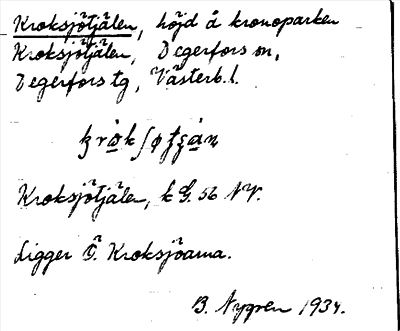 Kroksjötjälen, höjd å kronoparken
Kroksjötjälen, Degerfors sn,
Degerfors tg, Västerb. l.
Kroksjötjälen, k G. 56 NV.
Ligger Ö. Kroksjöarna.
B. Nygren 1934.